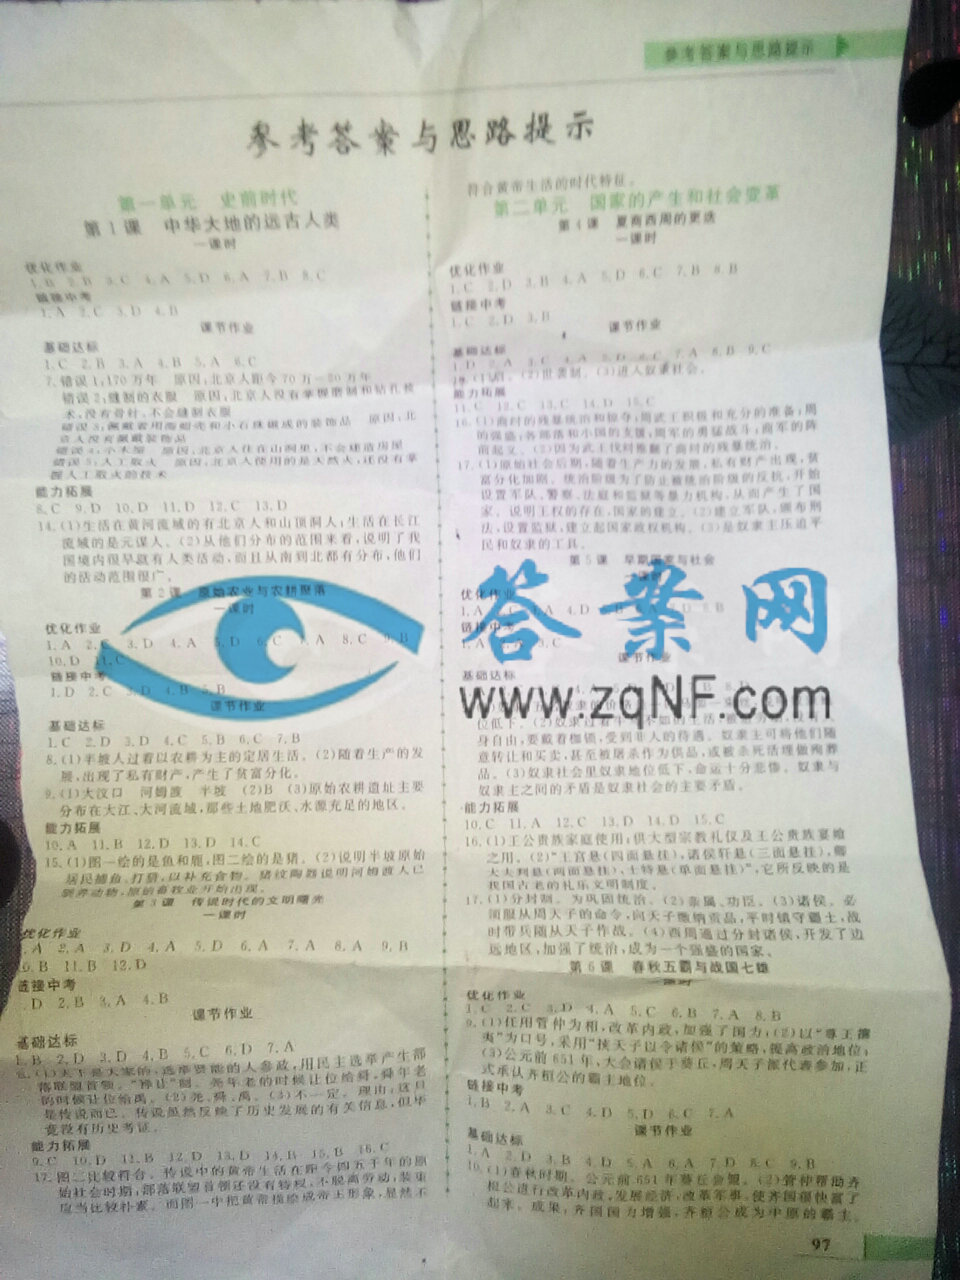 参考答案与思路提示
参考答案与思路提示
第一单元 史前时代
第1课 中华大地的远古人类
一课时
优化作业
1.B 2.B 3.C 4.A 5.D 6.A 7.B 8.C
链接中考
1.A 2.C 3.D 4.B
课节作业
基础达标
1.C 2.B 3.A 4.B 5.A 6.C
7.错误1:170万年 原因:北京人距今70万—20万年
错误2:缝制的衣服 原因:北京人没有掌握磨制和钻孔技
术,没有骨针,不会缝制衣服
错误3:佩戴着用海蚶壳和小石珠做成的装饰品 原因:北
京人没有佩戴装饰品
原因:北京人住在山洞里,不会建造房屋
错误5:人工取火 原因:北京人使用的是天然火,还没有掌
握人工取火的技术
能力拓展
8.C 9.D 10.D 11.D 12.C 13.D
14.(1)生活在黄河流域的有北京人和山顶洞人;生活在长江
流域的是元谋人。(2)从他们分布的范围来看,说明了我
国境内很早就有人类活动,而且从南到北都有分布,他们
的活动范围很广。
第2课 原始农业与农耕聚落
一课时
优化作业
1.A 2.C 3.D 4.A 5.D 6.C 7.A 8.C 9.B
10.D 11.C
链接中考
1.D 2.C 3.D 4.B 5.B
课节作业
基础达标
1.C 2.D 3.D 4.C 5.B 6.C 7.B
8.(1)半坡人过着以农耕为主的定居生活。(2)随着生产的发
展,出现了私有财产,产生了贫富分化。
9.(1)大汶口 河姆渡 半坡 (2)B (3)原始农耕遗址主要
分布在大江、大河流域,那些土地肥沃、水源充足的地区。
能力拓展
10.A 11.B 12.D 13.D 14.C
15.(1)图一绘的是鱼和鹿,图二绘的是猪。(2)说明半坡原始
居民捕鱼、打猎,以补充食物。猪纹陶器说明河姆渡人已
驯养动物,原始畜牧业开始出现。
第3课 传说时代的文明曙光
一课时
优化作业
.A 2.A 3.D 4.A 5.D 6.A 7.A 8.A 9.B
0.B 11.B 12.D
链接中考
D 2.B 3.A 4.B
课节作业
基础达标
1.B 2.D 3.D 4.B 5.C 6.D 7.A
8.(1)天下是大家的,选举贤能的人参政,用民主选举产生部
落联盟首领。“禅让”制。尧年老的时候让位给舜,舜年老
的时候让位给禹。(2)尧、舜、禹。(3)不一定。理由:这只
是传说而已。传说虽然反映了历史发展的有关信息,但毕
竟没有历史考证。
能力拓展
9.C 10.D 11.B 12.D 13.D 14.B 15.B 16.C
17.图二比较符合。传说中的黄帝生活在距今四五千年的原
始社会时期,部落联盟首领还没有特权,不脱离劳动,装束
应当比较朴素。而图一中把黄帝描绘成帝王形象,显然不
符合黄帝生活的时代特征。
第二单元 国家的产生和社会变革
第4课 夏商西周的更迭
一课时
优化作业
1.C 2.D 3.B 4.A 5.D 6.C 7.B 8.B
链接中考
1.C 2.D 3.B
课节作业
基础达标
1.D 2.A 3.C 4.A 5.D 6.C 7.A 8.B 9.C
(2)世袭制。(3)进入奴隶社会。
能力拓展
11.C 12.C 13.C 14.D 15.C
16.(1)商纣的残暴统治和掠夺;周武王积极和充分的准备;周
的强盛;各部落和小国的支援;周军的勇猛战斗;商军的阵
前起义。(2)因为武王伐纣推翻了商纣的残暴统治。
17.(1)原始社会后期,随着生产力的发展,私有财产出现,贫
富分化加剧。统治阶级为了防止被统治阶级的反抗,开始
设置军队、警察、法庭和监狱等暴力机构,从而产生了国
家。说明王权的存在,国家的建立。(2)建立军队,颁布刑
法,设置监狱,建立起国家政权机构。(3)是奴隶主压迫平
民和奴隶的工具。
第5课 早期国家与社会
一课时
优化作业
链接中考
课节作业
基础达标
位低下。(2)奴隶过着牛马不如的生活,
身自由,要戴着枷锁,受到非人的待遇。奴隶主可将他们随
意转让和买卖,甚至被屠杀作为供品,或被杀死活埋做殉葬
品。(3)奴隶社会里奴隶地位低下,命运十分悲惨。奴隶与
奴隶主之间的矛盾是奴隶社会的主要矛盾。
能力拓展
10.C 11.A 12.C 13.D 14.D 15.C
16.(1)王公贵族家庭使用;供大型宗教礼仪及王公贵族宴飨
之用。(2)“王宫悬(四面悬挂),诸侯轩悬(三面悬挂),卿
大夫判悬(两面悬挂),士特悬(单面悬挂)”,它所反映的是
我国古老的礼乐文明制度。
17.(1)分封制。为巩固统治。(2)亲属、功臣。(3)诸侯。必
须服从周天子的命令,向天子缴纳贡品,平时镇守疆土,战
时带兵随从天子作战。(4)西周通过分封诸侯,开发了边
远地区,加强了统治,成为一个强盛的国家。
第6课 春秋五霸与战国七雄
一课时
优化作业
1.C 2.C 3.D 4.A 5.C 6.B 7.A 8.B
9.(1)任用管仲为相,改革内政,加强了国力;(2)以“尊王攘
夷”为口号,采用“挟天子以令诸侯”的策略,提高政治地位;
(3)公元前651年,大会诸侯于葵丘,周天子派代表参加,正
式承认齐桓公的霸主地位。
链接中考
1.B 2.A 3.C 4.D 5.D 6.C 7.A
课节作业
基础达标
1.A 2.D 3.B 4.D 5.A 6.A 7.D 8.C 9.B
10.(1)春秋时期。公元前651年葵丘会盟。(2)管仲帮助齐
桓公进行改革内政,发展经济,改革军事,使齐国很快富了
起来。成果:齐国国力增强,齐桓公成为中原的霸主。
97
答案网
www.zqNF.com